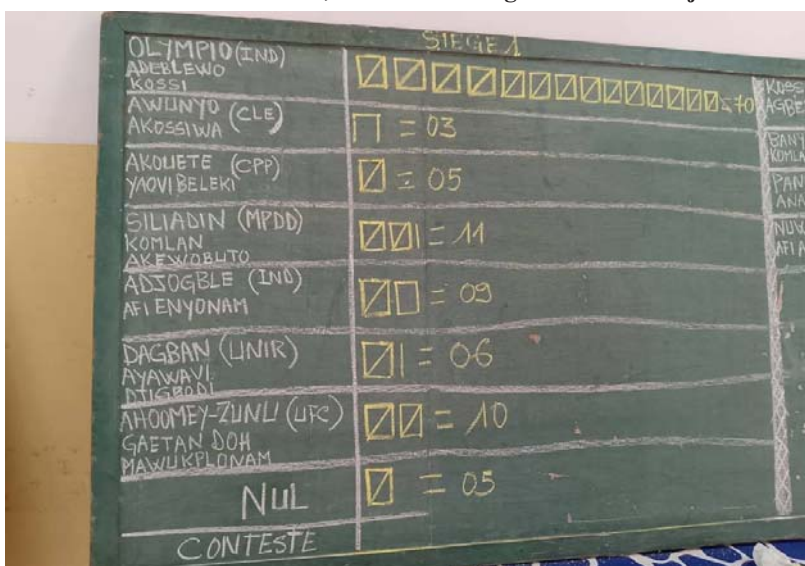 SIEGE 1
OLYMPIO (IND)
ADEBLEWO
KOSSI
= 70
AWUNYO (CLE)
AKOSSIWA
= 03
AKOUETE (CPP)
YAOVI BELEKI
= 05
SILIADIN (MPDD)
KOMLAN
AKEWOBUTO
= 11
ADJOGBLE (IND)
AFI ENYONAM
= 09
DAGBAN (UNIR)
AYAWAVI
DJIGBODI
= 06
AHOOMEY-ZUNU (UFC)
GAETAN DOH
MAWUKPLONAM
= 10
NUL
= 05
CONTESTE